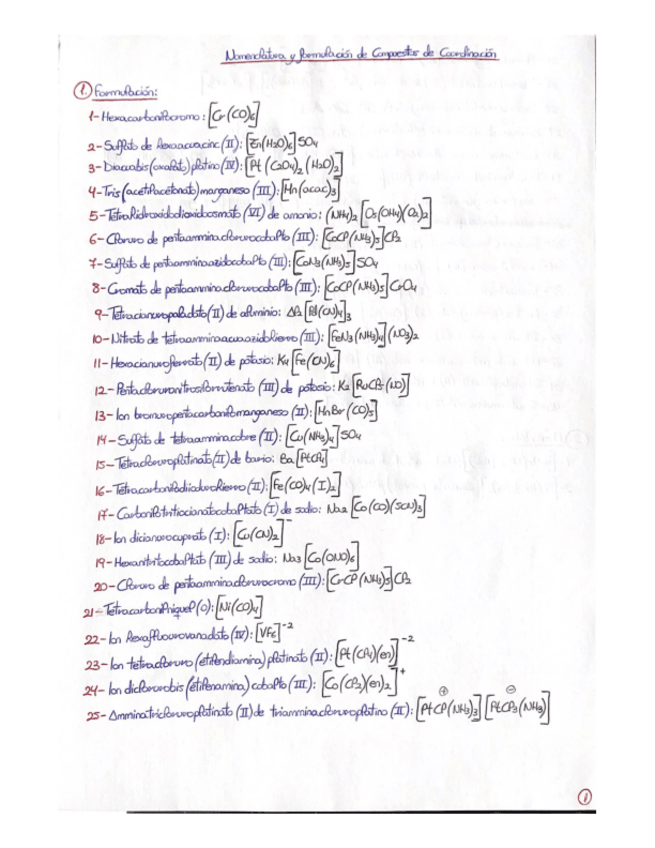 Nomenclatura y formulación de Compuestos de Coordinación
1. Formulación:
1- Hexacarbonilcromo: [Cr(CO)6]
2- Sulfato de hexaacuacinc (II): [Zn(H2O)6]SO4
3- Diacuabis(oxalato)platino (IV): [Pt(C2O4)2(H2O)2]
4- Tris(acetilacetonato)manganeso (III): [Mn(acac)3]
5- Tetrahidroxidodioxidoosmiato (VI) de amonio: (NH4)2[Os(OH)4(O2)2]
6- Cloruro de pentaamminaclorurocobalto (III): [CoCl(NH3)5]Cl2
7- Sulfato de pentaamminaazidocobalto (III): [CoN3(NH3)5]SO4
8- Cromato de pentaamminaclorurocobalto (III): [CoCl(NH3)5]CrO4
9- Tetracianuropaladato (II) de aluminio: Al[Pd(CN)4]3
10- Nitrato de tetraamminaacuaazidohierro (III): [FeN3(NH3)4](NO3)2
11- Hexacianuroferrato (II) de potasio: K4[Fe(CN)6]
12- Pentacloruronitrosilorutenato (III) de potasio: K2[RuCl5(NO)]
13- Ion bromuropentacarbonilomanganeso (II): [MnBr(CO)5]
14- Sulfato de tetraamminacobre (II): [Cu(NH3)4]SO4
15- Tetracloruroplatinato (II) de bario: Ba[PtCl4]
16- Tetracarbonildiiodurohierro (II): [Fe(CO)4(I)2]
17- Carboniltritiocianatocobaltato (I) de sodio: Na2[Co(CO)(SCN)3]
18- Ion dicianurocuprato (I): [Cu(CN)2]-
19- Hexanitritocobaltato (III) de sodio: Na3[Co(ONO)6]
20- Cloruro de pentaamminaclorurocromo (III): [CrCl(NH3)5]Cl2
21- Tetracarbonilniquel (0): [Ni(CO)4]
22- Ion hexafluorurovanadato (IV): [VF6]-2
23- Ion tetracloruro (etilendiamina) platinato (II): [Pt(Cl4)(en)]-2
24- Ion diclorurobis (etilenamina) cobalto (III): [Co(Cl2)(en)2]+
25- Amminatricloruroplatinato (II) de triamminacloruroplatino (II): [PtCl(NH3)3]⊕[PtCl3(NH3)]⊖
1